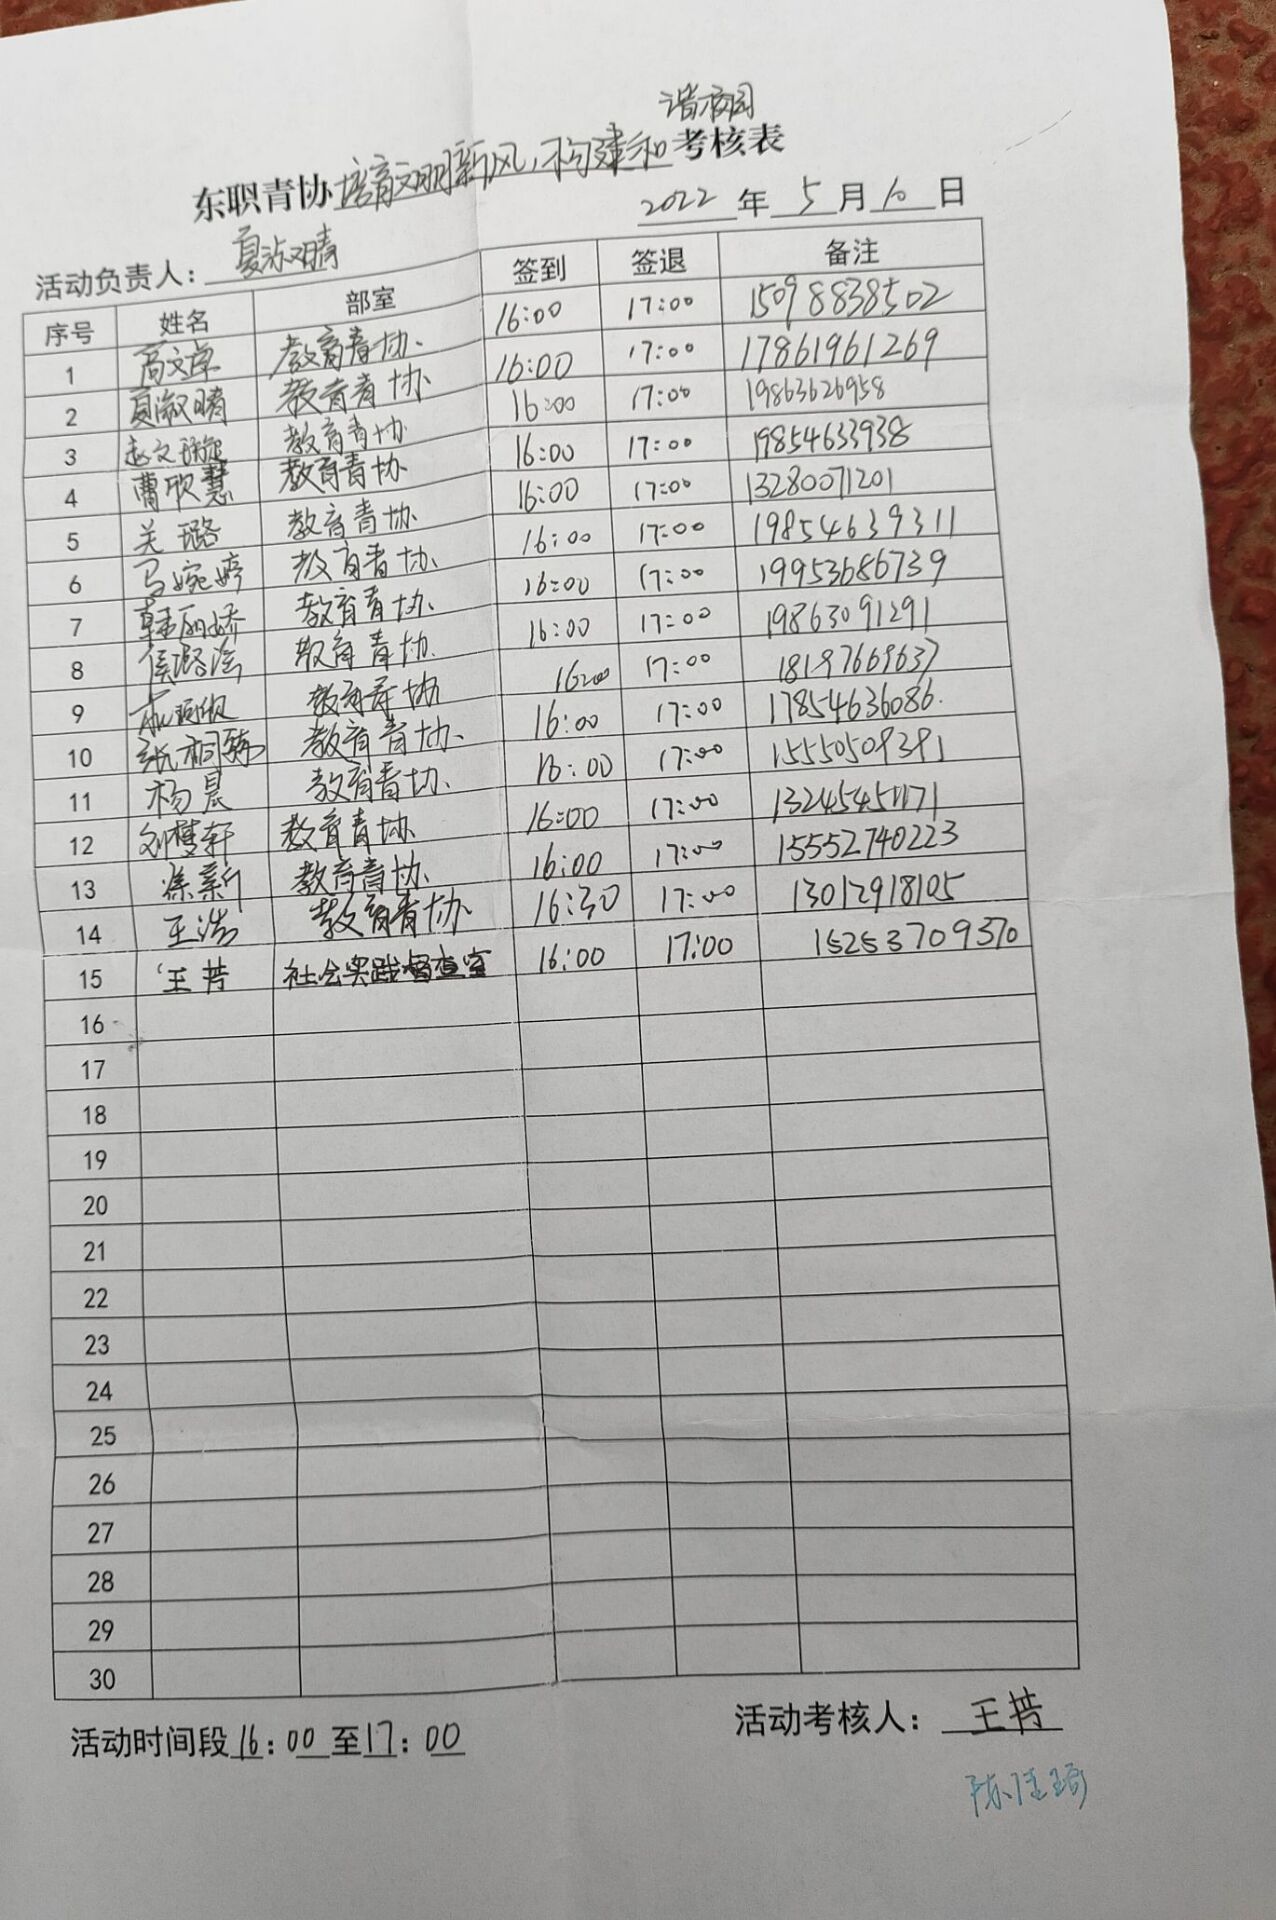 谐校园
东职青协培育文明新风,构建和考核表
2022年5月10日
活动负责人：夏淑晴
序号 姓名 部室 签到 签退 备注
1 高文卓 教育青协 16:00 17:00 15098838502
2 夏淑晴 教育青协 16:00 17:00 17861961269
3 赵文璇 教育青协 16:00 17:00 19863626958
4 曹欣慧 教育青协 16:00 17:00 19854633938
5 关璐 教育青协 16:00 17:00 13280071201
6 马婉婷 教育青协 16:00 17:00 19854639311
7 韩丽娇 教育青协 16:00 17:00 19953686739
8 侯璐瑶 教育青协 16:00 17:00 19863091291
9 教育青协 16:00 17:00 18197669637
10 张桐 教育青协 16:00 17:00 17854636086
11 杨晨 教育青协 16:00 17:00 15550509391
12 刘梦轩 教育青协 16:00 17:00
13 徐新 教育青协 16:00 17:00 15552740223
14 王浩 教育青协 16:30 17:00 13012918105
15 王芳 社会实践督查室 16:00 17:00 15253709370
16
17
18
19
20
21
22
23
24
25
26
27
28
29
30
活动时间段16:00至17:00 活动考核人：王芳
陈佳琦